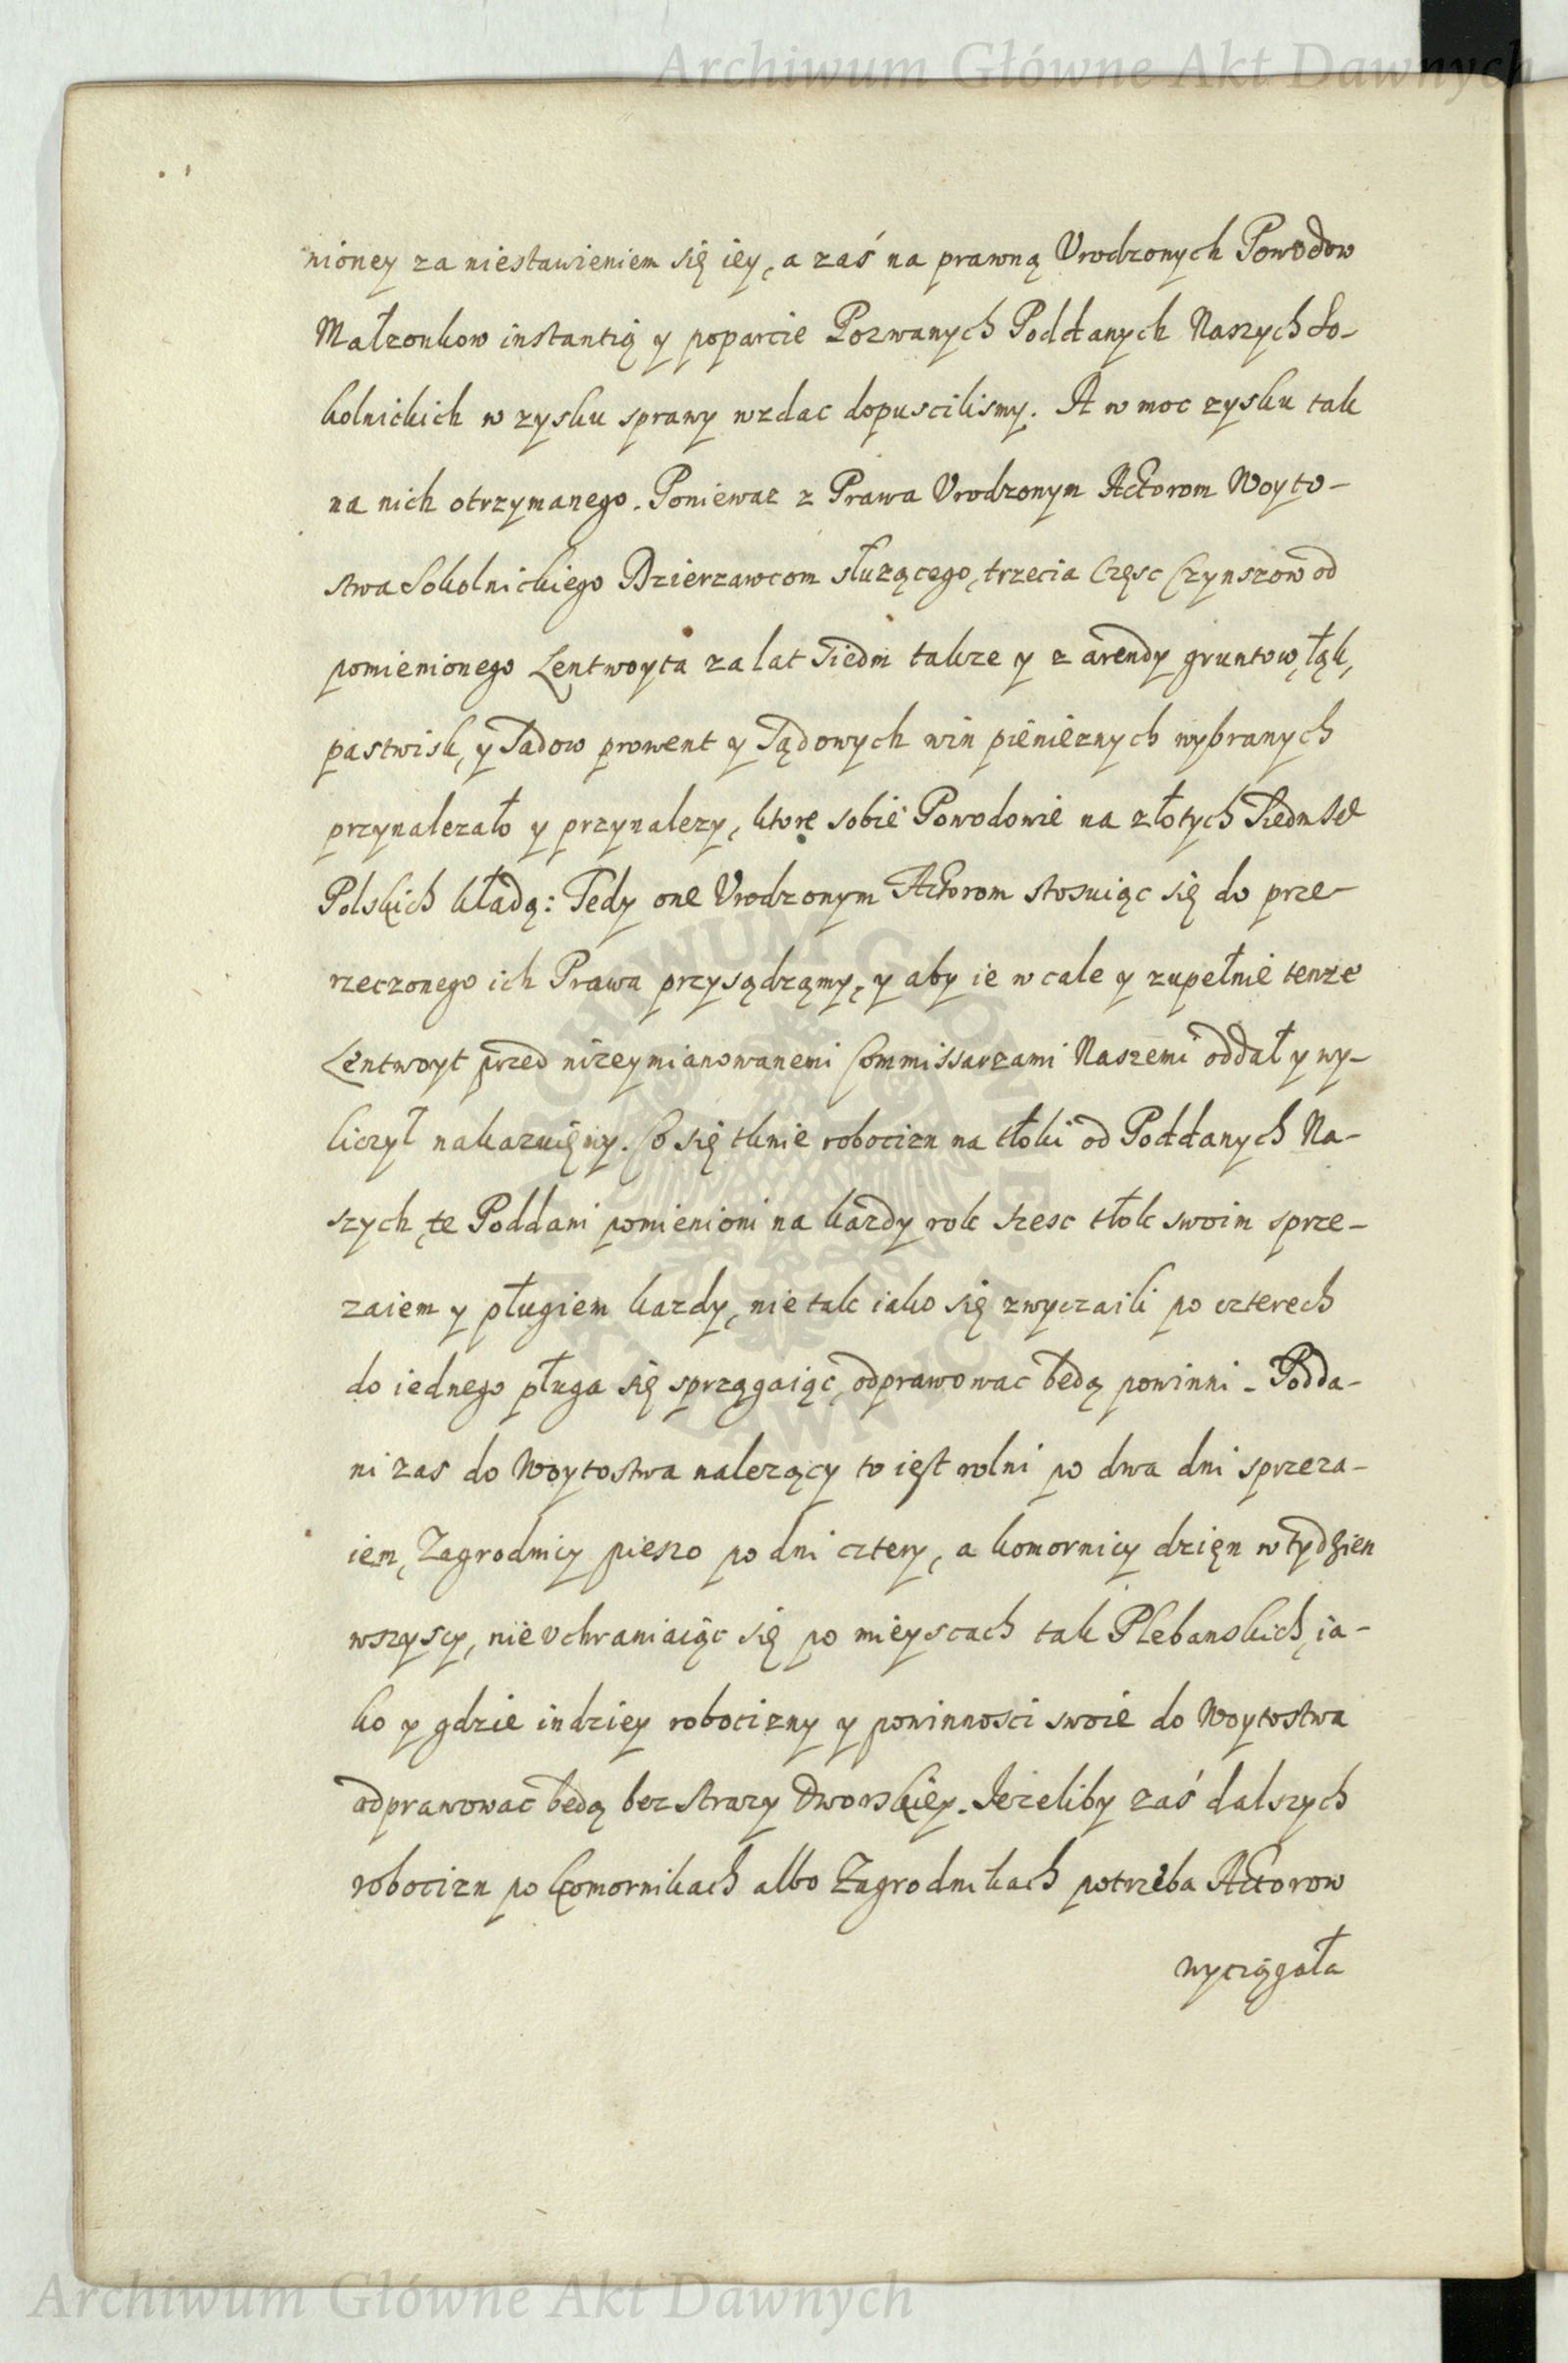 Archiwum Główne Akt Dawnych
nioney za niestawieniem się iey, a zaś na prawną Urodzonych Powodow
Małzonkow instantią y poparcie Pozwanych Poddanych Naszych So-
kolnickich w zysku sprawy wzdac dopuscilismy. A w moc zysku tak
na nich otrzymanego. Poniewaz z Prawa Urodzonym Actorom Woyto-
stwa Sokolnickiego Dzierzawcom słuzącego, trzecia Częsc Czynszow od
pomienionego Lentwoyta za lat siedm takze y z arendy gruntow, łąk,
pastwisk, y Sadow prowent y Sądowych win pienieznych wybranych
przynalezało y przynalezy, ktore sobie Powodowie na złotych Siedmset
Polskich kładą: Tedy one Urodzonym Actorom stosuiąc się do prze-
rzeczonego ich Prawa przysądzamy, y aby ie w cale y zupełnie tenze
Lentwoyt przed nizeymianowanemi Commissarzami Naszemi oddał y wy-
liczył nakazuięmy. Co się tknie robocizn na tłoki od Poddanych Na-
szych, te Poddani pomienioni na kazdy rok szesc tłok swoim sprze-
zaiem y pługiem kazdy, nie tak iako się zwyczaili po czterech
do iednego pługa się sprzągaiąc, odprawowac będą powinni. Podda-
ni zas do Woytostwa nalezący to iest rolni po dwa dni sprzeza-
iem, Zagrodnicy pieszo po dni cztery, a komornicy dzięn w tydzien
wszyscy, nie uchraniaiąc się po mieyscach tak Plebanskich, ia-
ko y gdzie indziey robocizny y powinnosci swoie do Woytostwa
odprawowac będą bez strazy Dworskiey. Iezeliby zaś dalszych
robocizn po komornikach albo Zagrodnikach potrzeba Actorow
wyciągała
ARCHIWUM GŁÓWNE
AKT DAWNYCH
Archiwum Główne Akt Dawnych